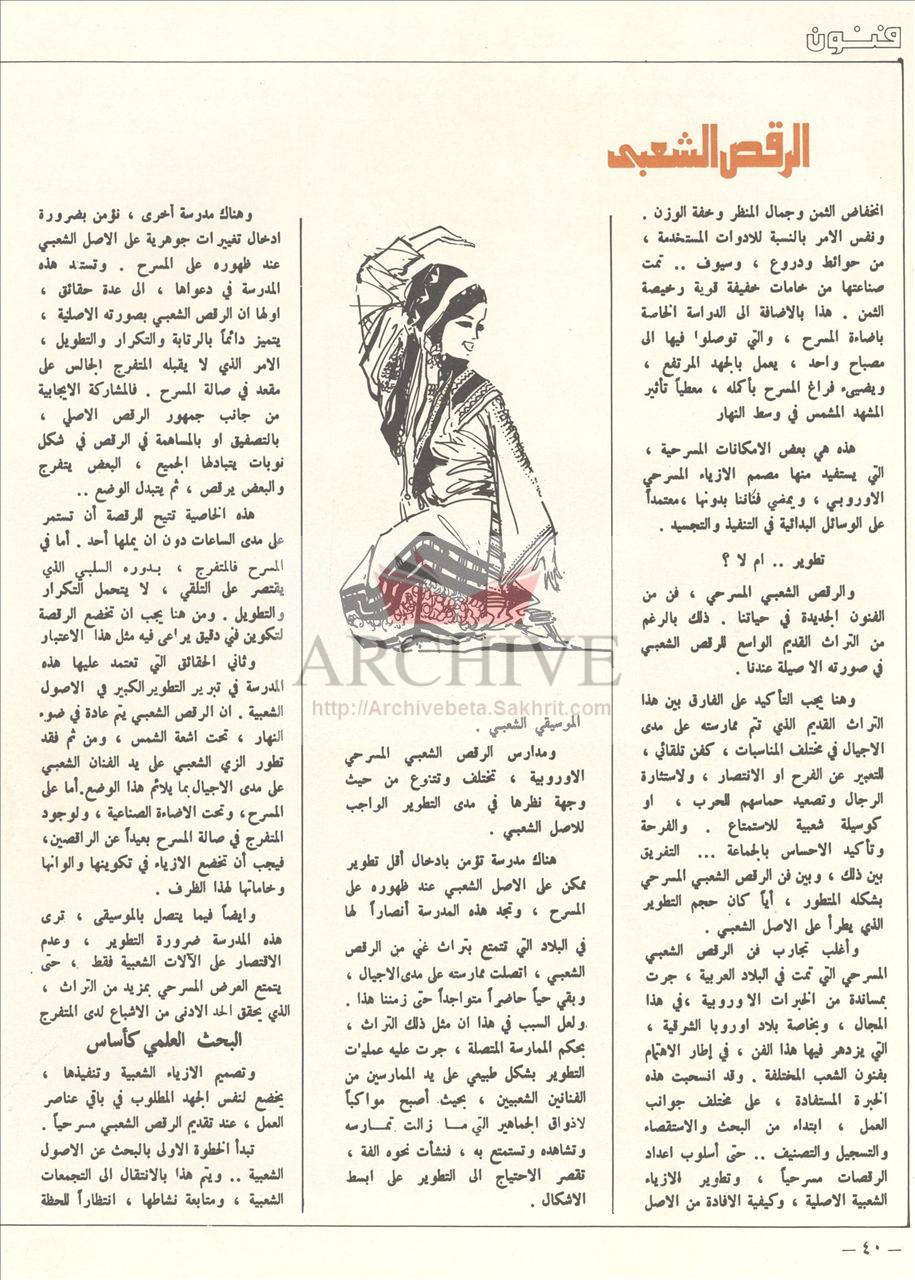 فنون
الرقص الشعبي
انخفاض الثمن وجمال المنظر وخفة الوزن .
ونفس الامر بالنسبة للادوات المستخدمة ،
من حوائط ودروع ، وسيوف .. تمت
صناعتها من خامات خفيفة قوية رخيصة
الثمن . هذا بالاضافة الى الدراسة الخاصة
باضاءة المسرح ، والتي توصلوا فيها الى
مصباح واحد ، يعمل بالجهد المرتفع ،
ويضيىء فراغ المسرح بأكمله ، معطياً تأثير
المشهد المشمس في وسط النهار
هذه هي بعض الامكانات المسرحية ،
التي يستفيد منها مصمم الازياء المسرحي
الاوروبي ، ويمضي فناننا بدونها ،معتمداً
على الوسائل البدائية في التنفيذ والتجسيد .
تطوير .. ام لا ؟
والرقص الشعبي المسرحي ، فن من
الفنون الجديدة في حياتنا . ذلك بالرغم
من التراث القديم الواسع للرقص الشعبي
في صورته الاصيلة عندنا .
وهنا يجب التأكيد على الفارق بين هذا
التراث القديم الذي تم ممارسته على مدى
الاجيال في مختلف المناسبات ، كفن تلقائي ،
للتعبير عن الفرح او الانتصار ، ولاستثارة
الرجال وتصعيد حماسهم للحرب ، او
كوسيلة شعبية للاستمتاع . والفرحة
وتأكيد الاحساس بالجماعة ... التفريق
بين ذلك ، وبين فن الرقص الشعبي المسرحي
بشكله المتطور ، أياً كان حجم التطوير
الذي يطرأ على الاصل الشعبي .
وأغلب تجارب فن الرقص الشعبي
المسرحي التي تمت في البلاد العربية ، جرت
بمساندة من الخبرات الاوروبية ،في هذا
المجال ، وبخاصة بلاد اوروبا الشرقية ،
التي يزدهر فيها هذا الفن ، في إطار الاهتمام
بفنون الشعب المختلفة . وقد انسحبت هذه
الخبرة المستفادة ، على مختلف جوانب
العمل ، ابتداء من البحث والاستقصاء
والتسجيل والتصنيف .. حتى أسلوب اعداد
الرقصات مسرحياً ، وتطوير الازياء
الشعبية الاصلية ، وكيفية الافادة من الاصل
الموسيقي الشعبي .
ومدارس الرقص الشعبي المسرحي
الاوروبية ، تختلف وتتنوع من حيث
وجهة نظرها في مدى التطوير الواجب
للاصل الشعبي .
هناك مدرسة تؤمن بادخال أقل تطوير
ممكن على الاصل الشعبي عند ظهوره على
المسرح ، وتجد هذه المدرسة أنصاراً لها
في البلاد التي تتمتع بتراث غني من الرقص
الشعبي ، اتصلت ممارسته على مدى الاجيال ،
وبقي حياً حاضراً متواجداً حتى زمننا هذا .
ولعل السبب في هذا ان مثل ذلك التراث ،
بحكم الممارسة المتصلة ، جرت عليه عمليات
التطوير بشكل طبيعي على يد الممارسين من
الفنانين الشعبيين ، بحيث أصبح مواكباً
لاذواق الجماهير التي ما زالت تمارسه
وتشاهده وتستمتع به ، فنشأت نحوه الفة ،
تقصر الاحتياج الى التطوير على ابسط
الاشكال .
وهناك مدرسة أخرى ، تؤمن بضرورة
ادخال تغييرات جوهرية على الاصل الشعبي
عند ظهوره على المسرح . وتستند هذه
المدرسة في دعواها ، الى عدة حقائق ،
اولها ان الرقص الشعبي بصورته الاصلية ،
يتميز دائماً بالرتابة والتكرار والتطويل ،
الامر الذي لا يقبله المتفرج الجالس على
مقعد في صالة المسرح . فالمشاركة الايجابية
من جانب جمهور الرقص الاصلي ،
بالتصفيق او بالمساهمة في الرقص في شكل
نوبات يتبادلها الجميع ، البعض يتفرج
والبعض يرقص ، ثم يتبدل الوضع ..
هذه الخاصية تتيح للرقصة أن تستمر
على مدى الساعات دون ان يملها أحد . أما في
المسرح فالمتفرج ، بدوره السلبي الذي
يقتصر على التلقي ، لا يتحمل التكرار
والتطويل . ومن هنا يجب ان تخضع الرقصة
لتكوين فني دقيق يراعى فيه مثل هذا الاعتبار
وثاني الحقائق التي تعتمد عليها هذه
المدرسة في تبرير التطوير الكبير في الاصول
الشعبية . ان الرقص الشعبي يتم عادة في ضوء
النهار ، تحت اشعة الشمس ، ومن ثم فقد
تطور الزي الشعبي على يد الفنان الشعبي
على مدى الاجيال بما يلائم هذا الوضع.أما على
المسرح، وتحت الاضاءة الصناعية ، ولوجود
المتفرج في صالة المسرح بعيداً عن الراقصين،
فيجب أن تخضع الازياء في تكوينها والوانها
وخاماتها لهذا الظرف .
وايضاً فيما يتصل بالموسيقى ، ترى
هذه المدرسة ضرورة التطوير ، وعدم
الاقتصار على الآلات الشعبية فقط ، حتى
يتمتع العرض المسرحي بمزيد من التراث ،
الذي يحقق الحد الادنى من الاشباع لدى المتفرج
البحث العلمي كأساس
وتصميم الازياء الشعبية وتنفيذها ،
يخضع لنفس الجهد المطلوب في باقي عناصر
العمل ، عند تقديم الرقص الشعبي مسرحياً .
تبدأ الخطوة الاولى بالبحث عن الاصول
الشعبية .. ويتم هذا بالانتقال الى التجمعات
الشعبية ، ومتابعة نشاطها ، انتظاراً للحظة
ARCHIVE
http://Archivebeta.Sakhrit.com
— ٤٠ —